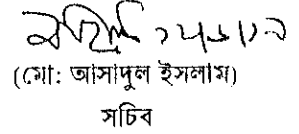 (মো: আসাদুল ইসলাম)
সচিব